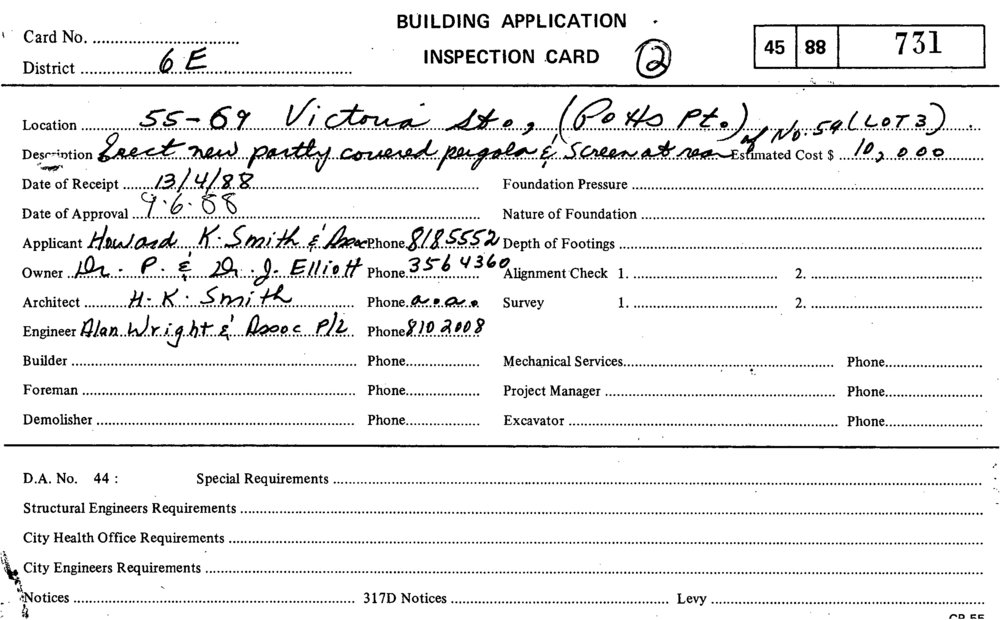 BUILDING APPLICATION
Card No.
INSPECTION CARD 2 45 88 731
District 6E
Location 55-69 Victoria St., (Potts Pt.) of No. 59 (LOT 3)
Description Erect new partly covered pergola & Screen at rear Estimated Cost $ 10,000
Date of Receipt 13/4/88 Foundation Pressure
Date of Approval 9.6.88 Nature of Foundation
Applicant Howard K. Smith & Assoc Phone 8185552 Depth of Footings
Owner Dr. P. & Dr. J. Elliott Phone 3564360 Alignment Check 1. 2.
Architect H. K. Smith Phone a.a.a. Survey 1. 2.
Engineer Alan Wright & Assoc P/L Phone 8102008
Builder Phone Mechanical Services Phone
Foreman Phone Project Manager Phone
Demolisher Phone Excavator Phone
D.A. No. 44 : Special Requirements
Structural Engineers Requirements
City Health Office Requirements
City Engineers Requirements
Notices 317D Notices Levy
CP 55